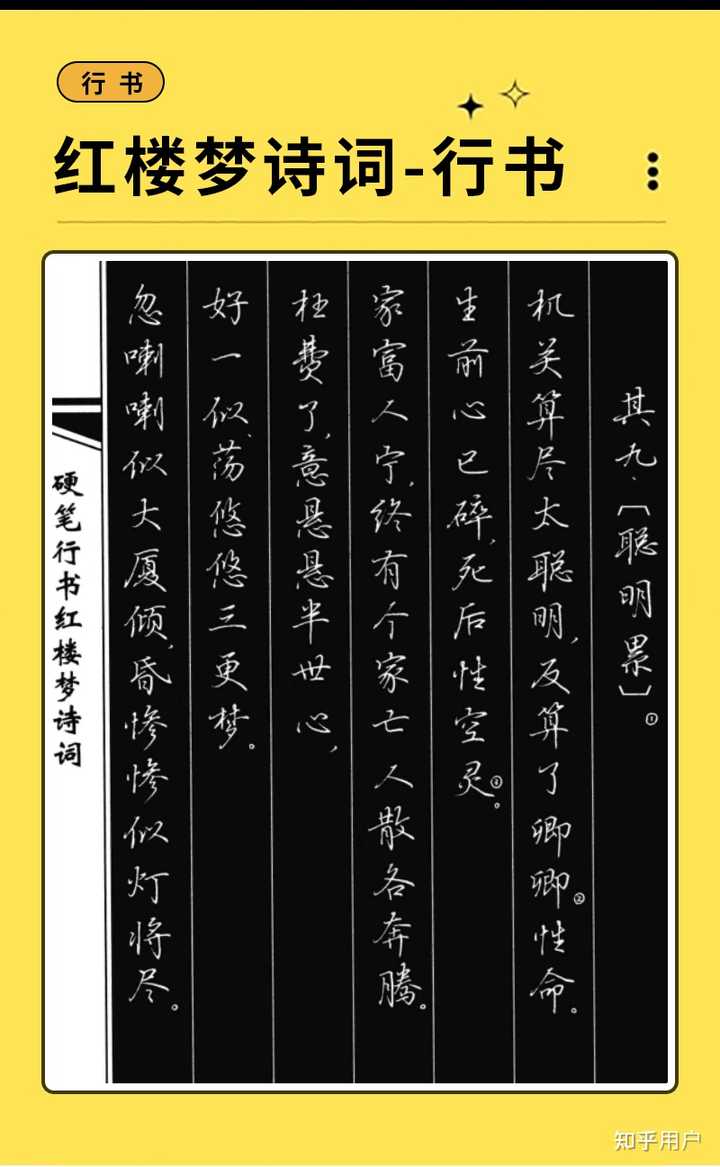 行书
红楼梦诗词-行书
其九·〔聪明累〕①
机关算尽太聪明,反算了卿卿②性命。
生前心已碎,死后性空灵③。
家富人宁,终有个家亡人散各奔腾。
枉费了,意悬悬半世心,
好一似、荡悠悠三更梦。
忽喇喇似大厦倾,昏惨惨似灯将尽。
硬笔行书红楼梦诗词
知乎用户